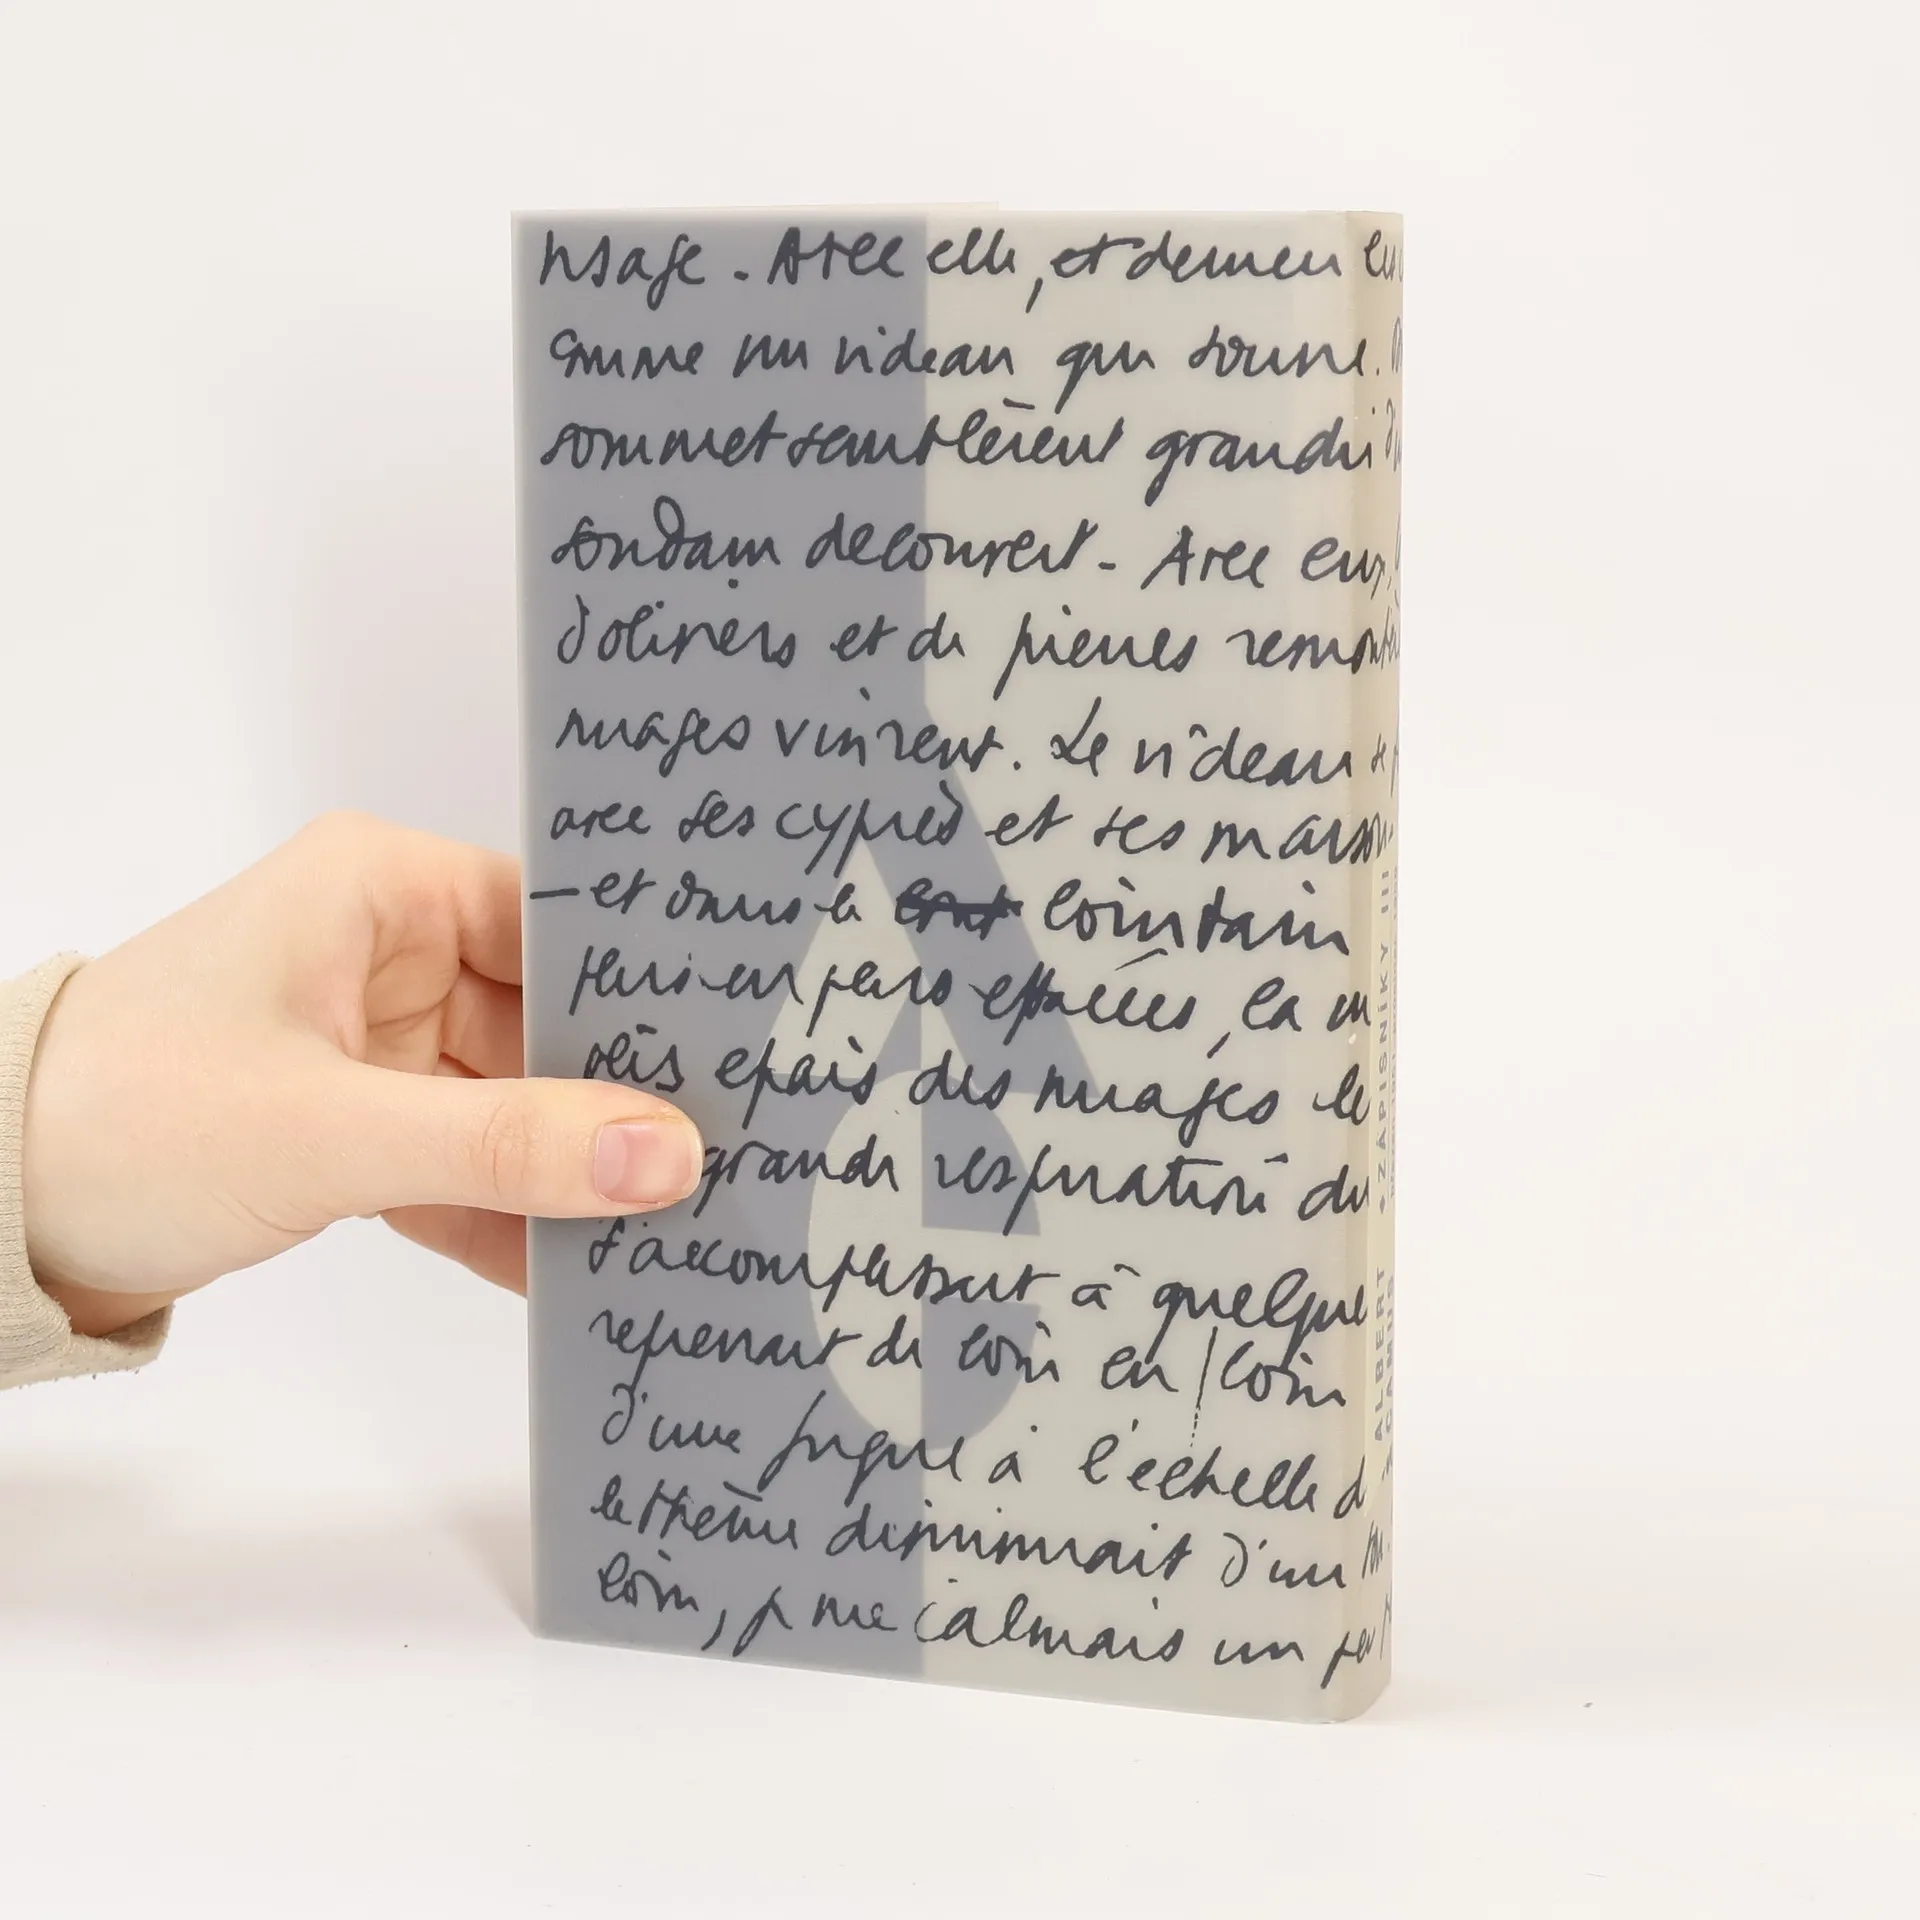 visage. Avec elle, et derrière les
comme un rideau qui s'ouvre.
sommet semblèrent grandir d'u
soudain découvert. Avec eux,
d'oliviers et de pierres remonté
nuages vinrent. Le rideau se
avec ses cyprès et ses maisons
— et dans le lointain
plus en plus effacées, la
plis épais des nuages
grande respiration du
s'accomplissait à quelque
reprenait de loin en loin
d'une fugue à l'échelle d
le thème diminuait d'un
loin, je me calmais un peu
ALBERT CAMUS • ZÁPISNÍKY III